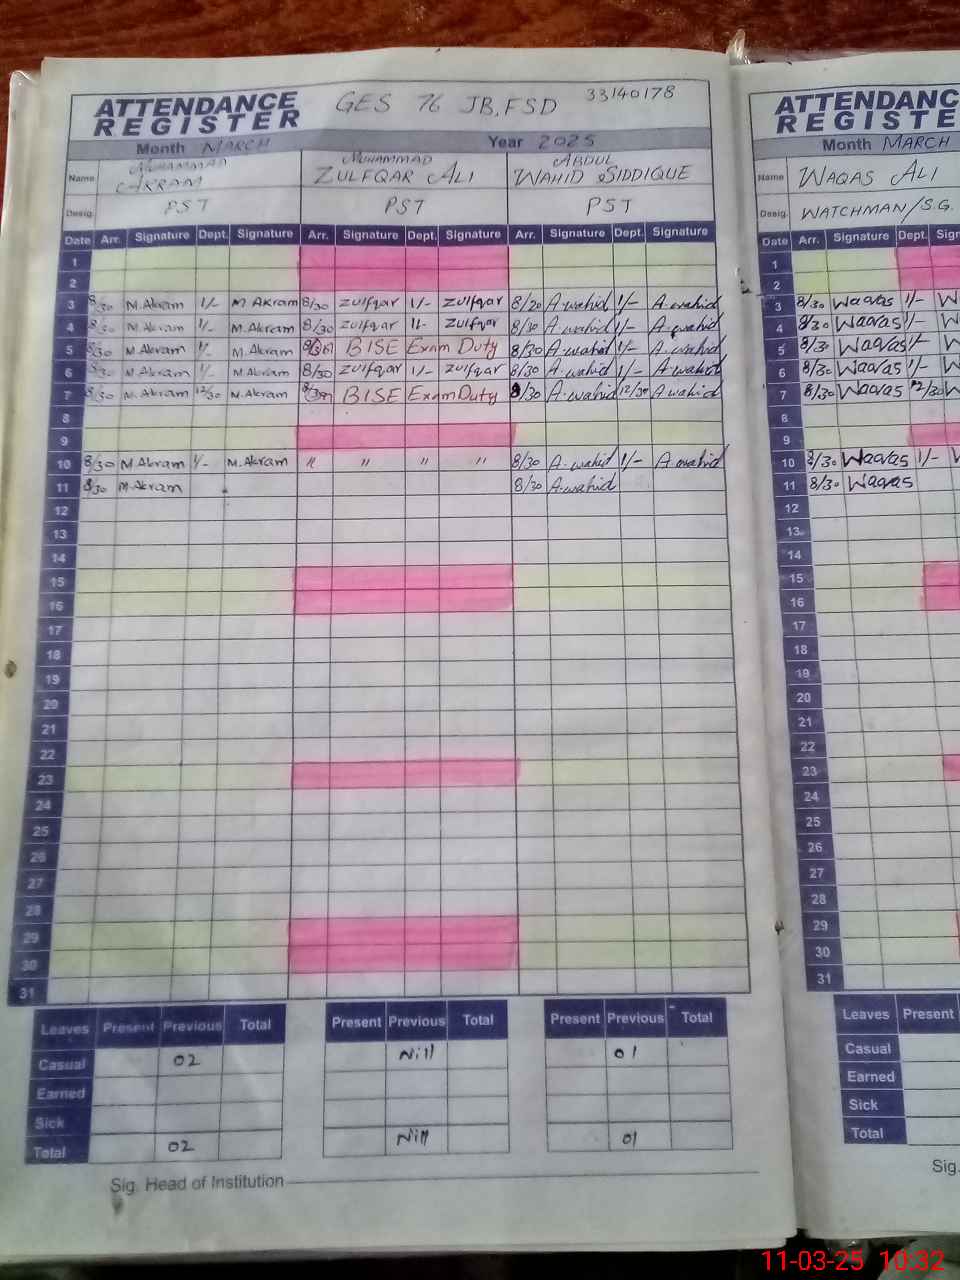 ATTENDANCE REGISTER GES 76 JB, FSD 33140178
Month MARCH Year 2025
Name MUHAMMAD AKRAM MUHAMMAD ZULFQAR ALI ABDUL WAHID SIDDIQUE
Desig. PST PST PST
Date Arr. Signature Dept. Signature Arr. Signature Dept. Signature Arr. Signature Dept. Signature
1
2
3 8/30 M.Akram 1/- M Akram 8/30 zulfqar 1/- zulfqar 8/20 A.wahid 1/- A.wahid
4 8/30 M.Akram 1/- M.Akram 8/30 zulfqar 1/- zulfqar 8/30 A.wahid 1/- A.wahid
5 8/30 M.Akram 1/- M.Akram BISE Exam Duty 8/30 A.wahid 1/- A.wahid
6 8/30 M.Akram 1/- M.Akram 8/30 zulfqar 1/- zulfqar 8/30 A.wahid 1/- A.wahid
7 8/30 M.Akram 12/30 M.Akram BISE Exam Duty 8/30 A.wahid 12/30 A.wahid
8
9
10 8/30 M.Akram 1/- M.Akram " " " " 8/30 A.wahid 1/- A.wahid
11 8/30 M.Akram 8/30 A.wahid
12
13
14
15
16
17
18
19
20
21
22
23
24
25
26
27
28
29
30
31
Leaves Present Previous Total Present Previous Total Present Previous Total
Casual 02 Nill 01
Earned
Sick
Total 02 Nill 01
Sig. Head of Institution
ATTENDANC
REGISTER
Month MARCH
Name WAQAS ALI
Desig. WATCHMAN/S.G.
Date Arr. Signature Dept. Sign
1
2
3 8/30 Waqas 1/- W
4 8/30 Waqas 1/- W
5 8/30 Waqas 1/- W
6 8/30 Waqas 1/- W
7 8/30 Waqas 12/30 W
8
9
10 8/30 Waqas 1/- W
11 8/30 Waqas
12
13
14
15
16
17
18
19
20
21
22
23
24
25
26
27
28
29
30
31
Leaves Present
Casual
Earned
Sick
Total
Sig.
11-03-25 10:32